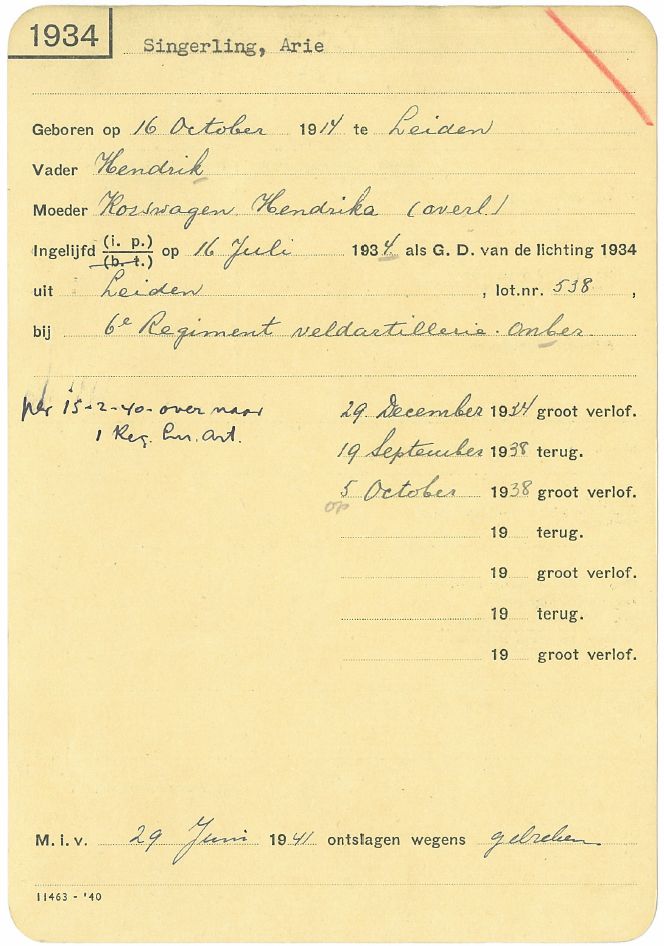 1934
Singerling, Arie
Geboren op 16 October 1914 te Leiden
Vader Hendrik
Moeder Koswagen Hendrika (overl.)
Ingelijfd (i. p.) (b. t.) op 16 Juli 1934 als G. D. van de lichting 1934
uit Leiden , lot.nr. 538 ,
bij 6e Regiment veldartillerie. Onber.
per 15-2-40- over naar
1 Reg. Art.
29 December 1934 groot verlof.
19 September 1938 terug.
5 October 1938 groot verlof.
op
19 terug.
19 groot verlof.
19 terug.
19 groot verlof.
M. i. v. 29 Juni 1941 ontslagen wegens gebreken
11463 - '40